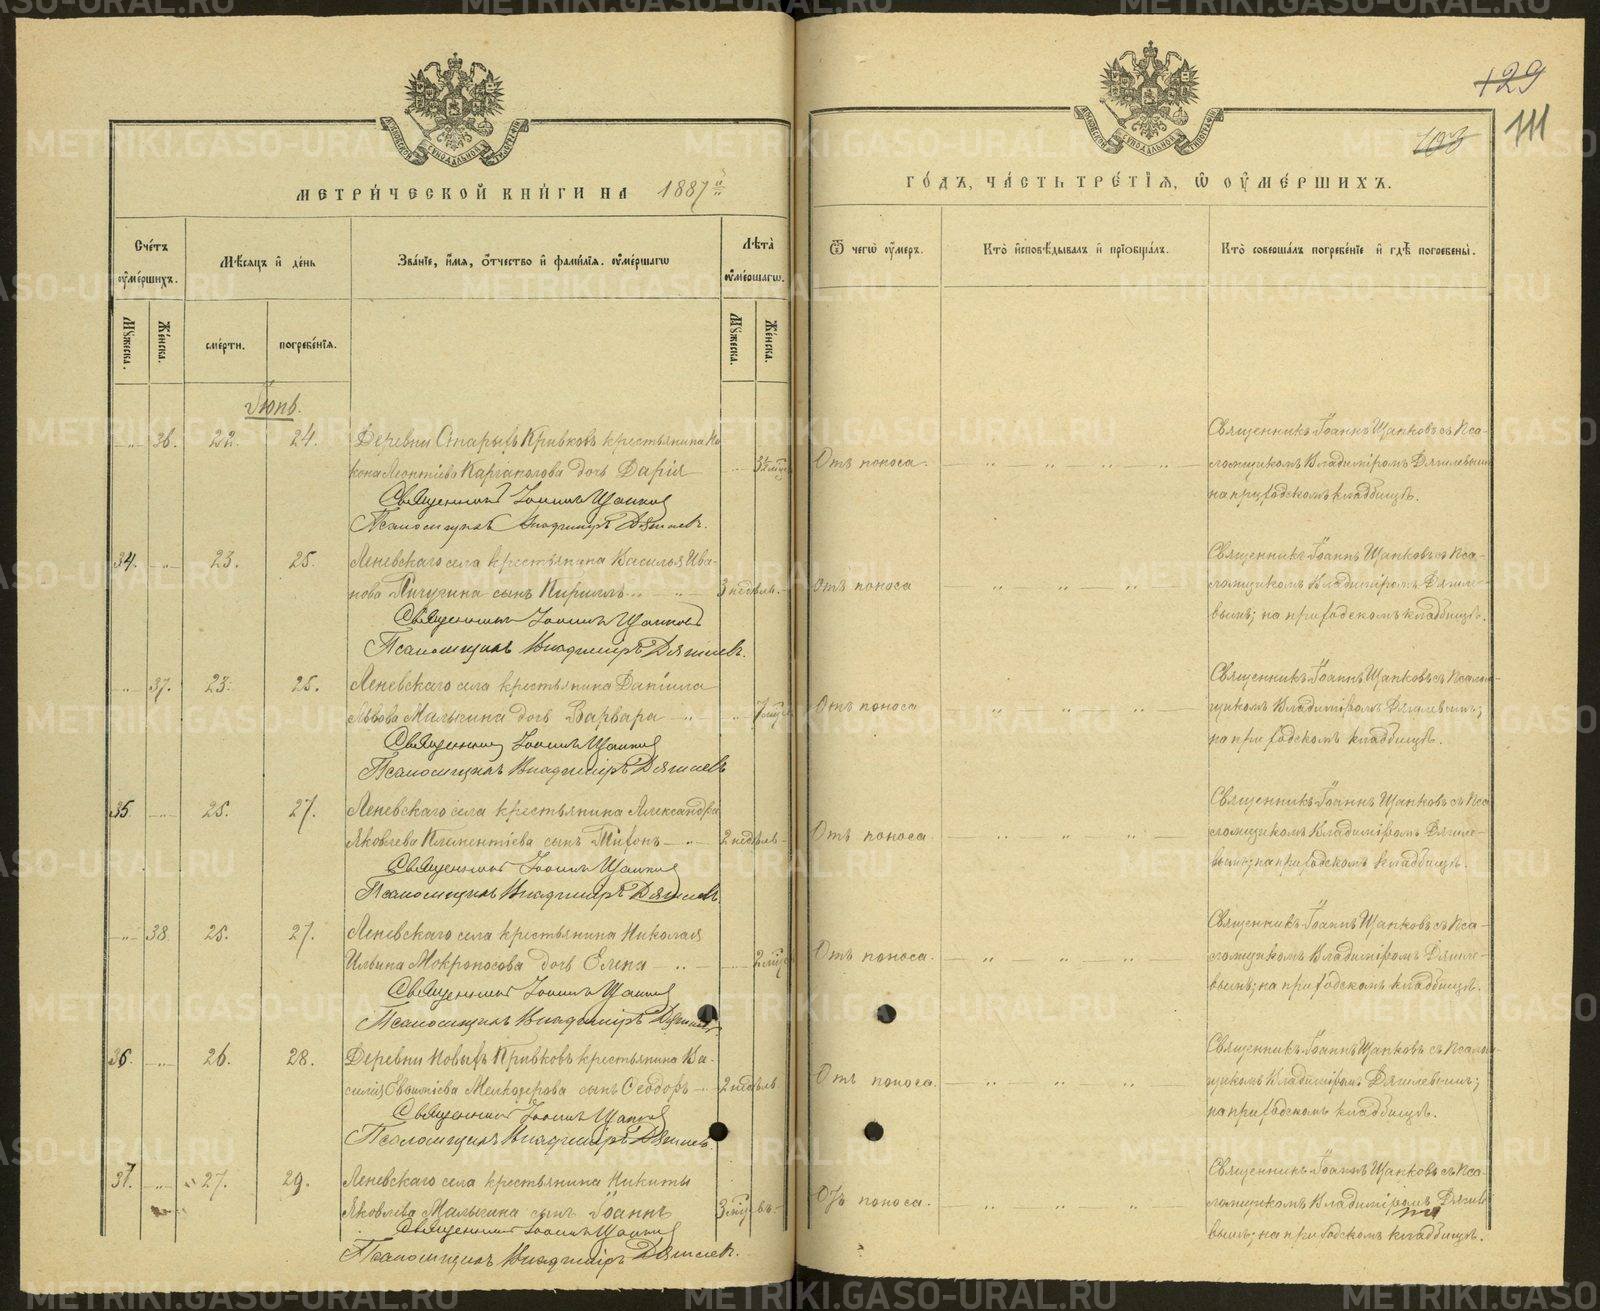 129
103
111
МЕТРИ́ЧЕСКОЙ КНИ́ГИ НА 1887й
ГО́ДЪ, ЧА́СТЬ ТРЕ́ТІѦ, Ѡ ОУМЕ́РШИХЪ.
Сче́тъ оуме́ршихъ.
Мѣ́сяцъ и де́нь
Зва́ніе, и́мѧ, о́тчество и фами́лія оуме́ршагѡ
Лѣ́та оуме́ршагѡ
Ѿ чегѡ̀ оу́меръ.
Кто̀ и҆сповѣ́дывалъ и҆ прїобща́лъ.
Кто̀ соверша́лъ погребе́ніе и҆ гдѣ̀ погребены̀.
Мꙋ́жеска.
Же́нска.
сме́рти.
погребе́нїѧ.
Мꙋ́жеска.
Же́нска.
Іюнь.
36. 22. 24. Деревни Старыхъ Кривковъ крестьянина Ко-
кона Леонтіева Каргаполова дочь Дарія
Священникъ Іоаннъ Щапковъ
Псаломщикъ Владиміръ Дягилевъ.
Отъ поноса.
Священникъ Іоаннъ Щапковъ съ Пса-
ломщикомъ Владиміромъ Дягилевымъ
на приходскомъ кладбищѣ.
34. 23. 25. Леневскаго села крестьянина Василья Ива-
нова Пичугина сынъ Кириллъ 3 недѣль.
Священникъ Іоаннъ Щапковъ
Псаломщикъ Владиміръ Дягилевъ.
Отъ поноса
Священникъ Іоаннъ Щапковъ съ Пса-
ломщикомъ Владиміромъ Дягиле-
вымъ; на приходскомъ кладбищѣ.
37. 23. 25. Леневскаго села крестьянина Даніила
Львова Малыгина дочь Варвара
Священникъ Іоаннъ Щапковъ
Псаломщикъ Владиміръ Дягилевъ
Отъ поноса
Священникъ Іоаннъ Щапковъ съ Псалом-
щикомъ Владиміромъ Дягилевымъ;
на приходскомъ кладбищѣ.
35. 25. 27. Леневскаго села крестьянина Александра
Яковлева Климентіева сынъ Тихонъ 2 недѣль
Священникъ Іоаннъ Щапковъ
Псаломщикъ Владиміръ Дягилевъ
Отъ поноса
Священникъ Іоаннъ Щапковъ съ Пса-
ломщикомъ Владиміромъ Дягиле-
вымъ; на приходскомъ кладбищѣ.
38. 25. 27. Леневскаго села крестьянина Николая
Ильина Мокроносова дочь Елена
Священникъ Іоаннъ Щапковъ
Псаломщикъ Владиміръ Дягилевъ
Отъ поноса.
Священникъ Іоаннъ Щапковъ съ Пса-
ломщикомъ Владиміромъ Дягиле-
вымъ; на приходскомъ кладбищѣ.
36. 26. 28. Деревни Новыхъ Кривковъ крестьянина Ва-
силія Мелкозерова сынъ Ѳеодоръ 2 недѣль
Священникъ Іоаннъ Щапковъ
Псаломщикъ Владиміръ Дягилевъ.
Отъ поноса.
Священникъ Іоаннъ Щапковъ съ Псалом-
щикомъ Владиміромъ Дягилевымъ;
на приходскомъ кладбищѣ.
37. 27. 29. Леневскаго села крестьянина Никиты
Яковлева Малыгина сынъ Іоаннъ
Священникъ Іоаннъ Щапковъ
Псаломщикъ Владиміръ Дягилевъ.
Отъ поноса.
Священникъ Іоаннъ Щапковъ съ Пса-
ломщикомъ Владиміромъ Дягиле-
вымъ; на приходскомъ кладбищѣ.
METRIKI.GASO-URAL.RU